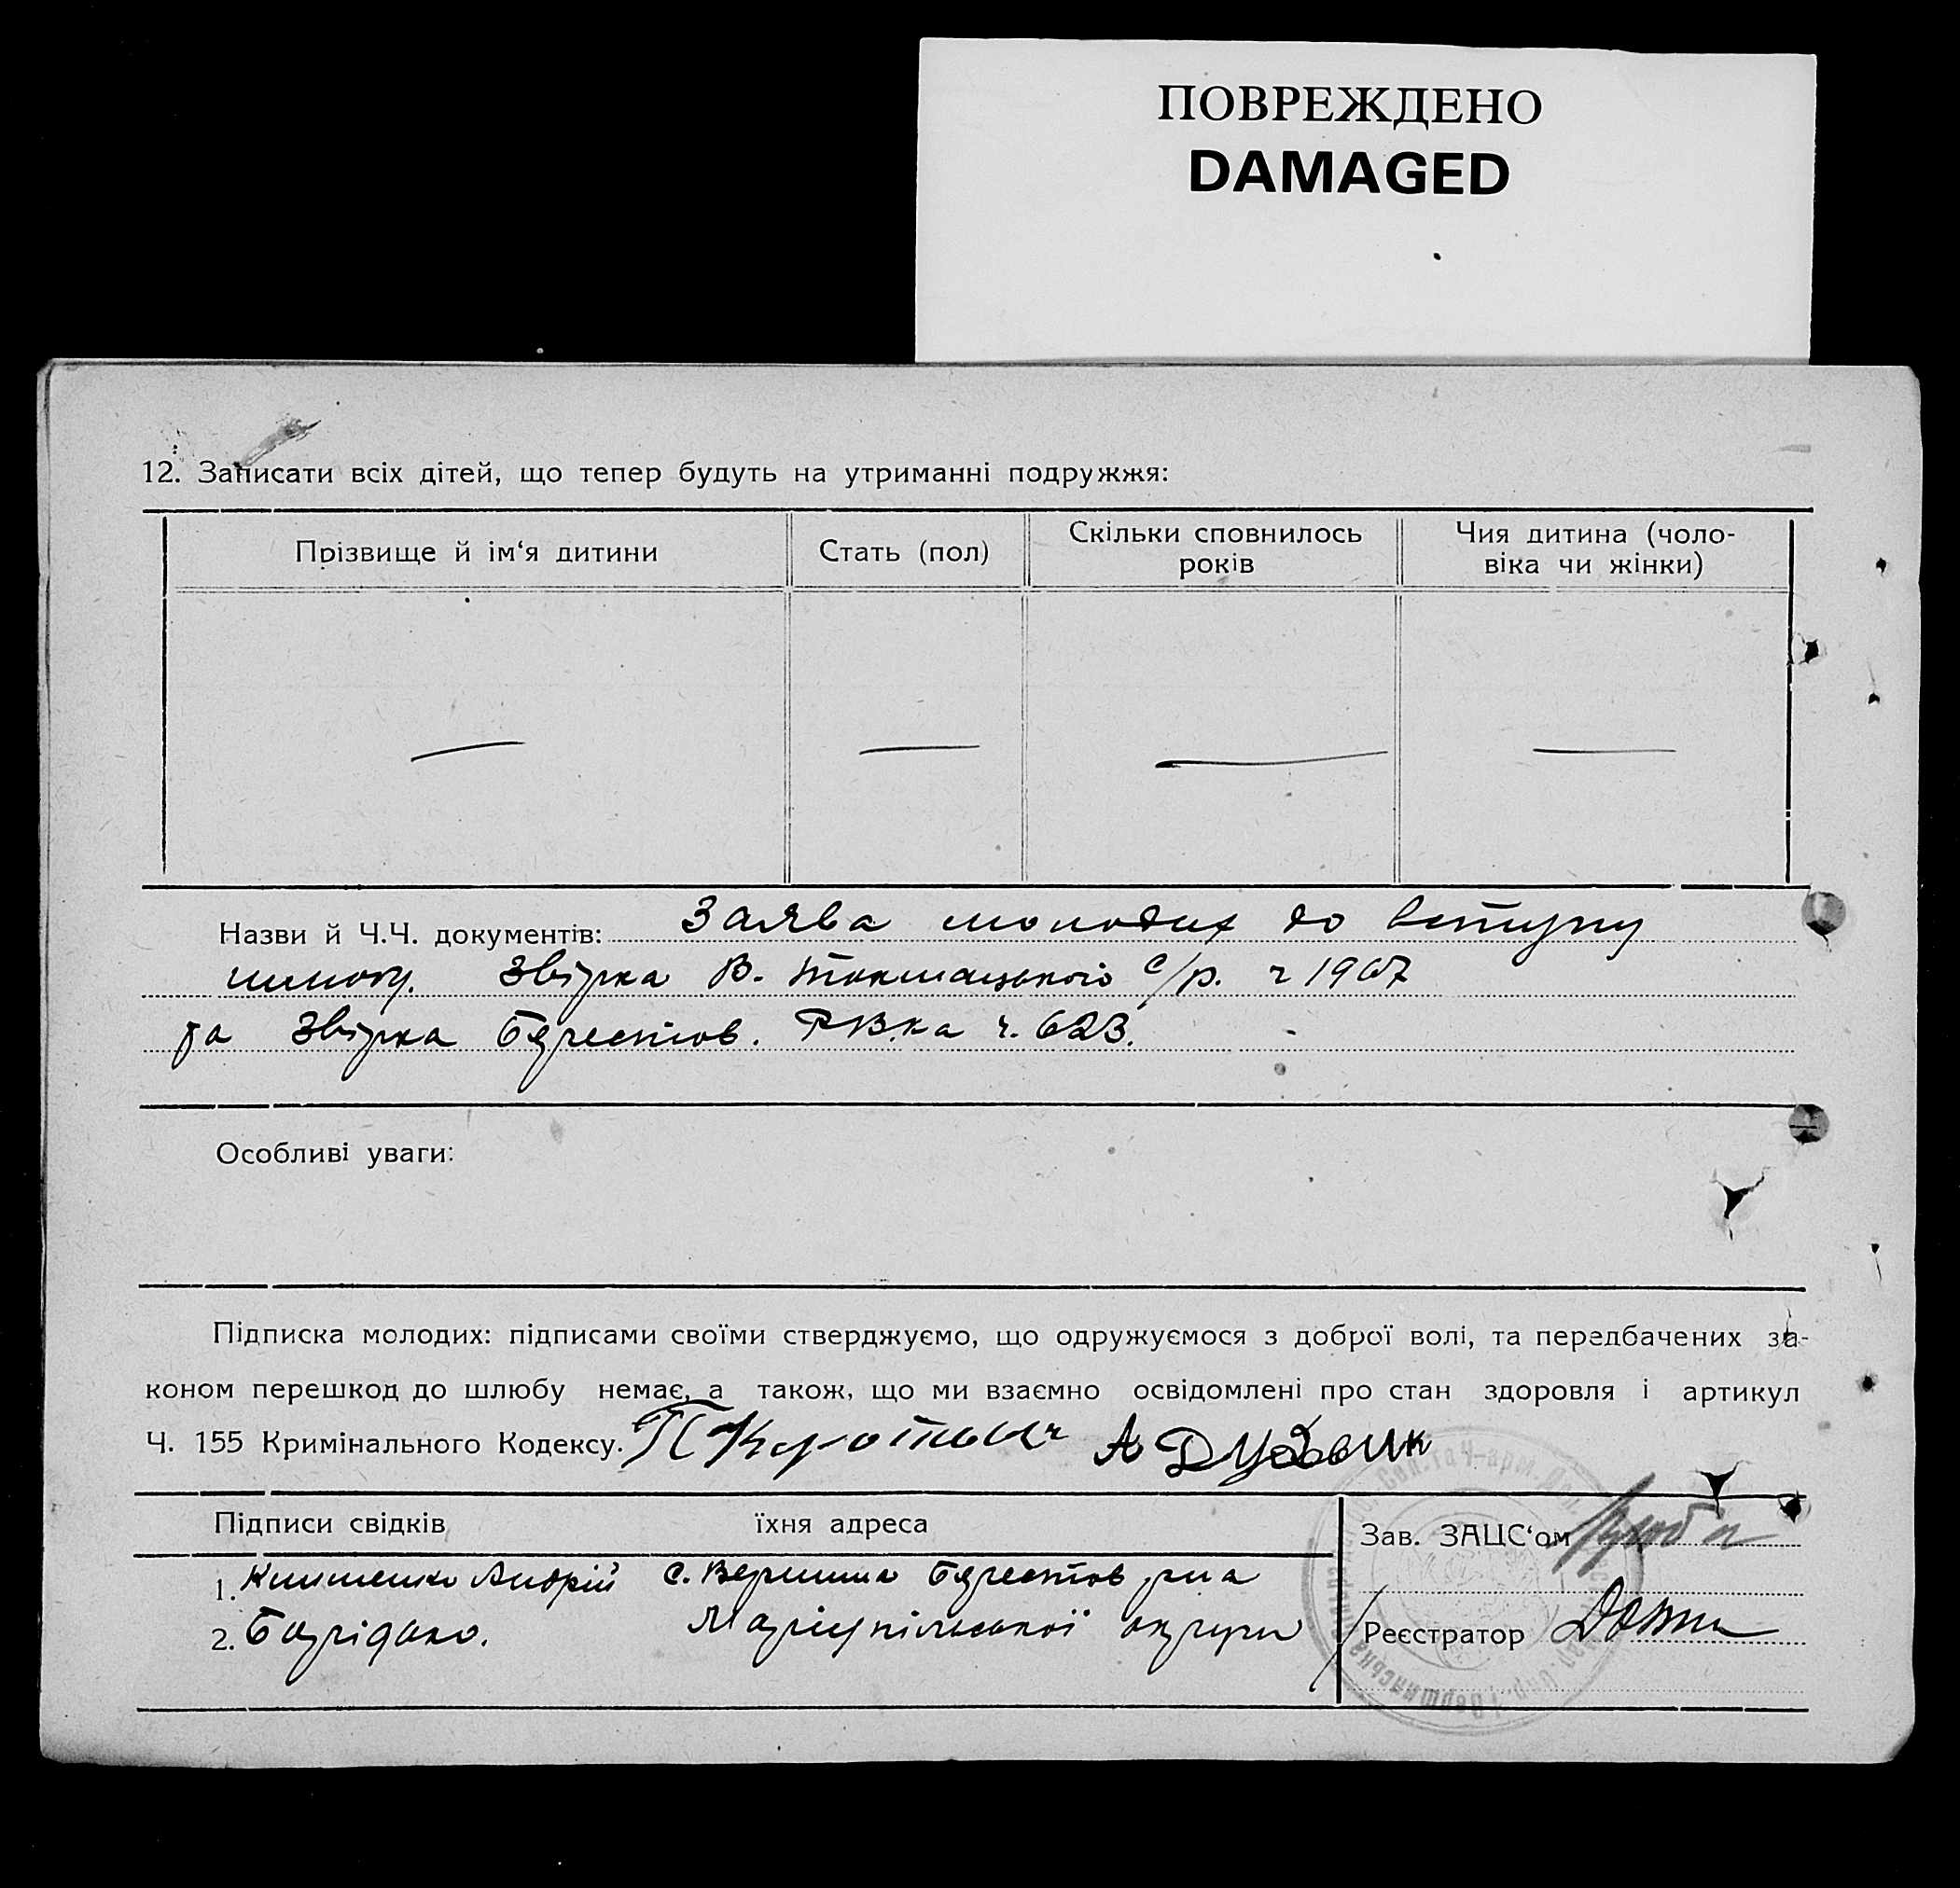 ПОВРЕЖДЕНО
DAMAGED
12. Записати всіх дітей, що тепер будуть на утриманні подружжя:
Прізвище й ім‘я дитини
Стать (пол)
Скільки сповнилось
років
Чия дитина (чоло-
віка чи жінки)
Назви й Ч.Ч. документів: Заява молодих до вступу
шлюбу. Звірка В. Токмацького с/р. ч 1907
та Звірка Бересттов. РВка ч. 623.
Особливі уваги:
Підписка молодих: підписами своїми стверджуємо, що одружуємося з доброї волі, та передбачених за-
коном перешкод до шлюбу немає, а також, що ми взаємно освідомлені про стан здоровля і артикул
Ч. 155 Кримінального Кодексу.
Підписи свідків
їхня адреса
Зав. ЗАЦС‘ом
1. Андрій с. Вершина Берестов рна
2. Маріупільської округи
Реєстратор